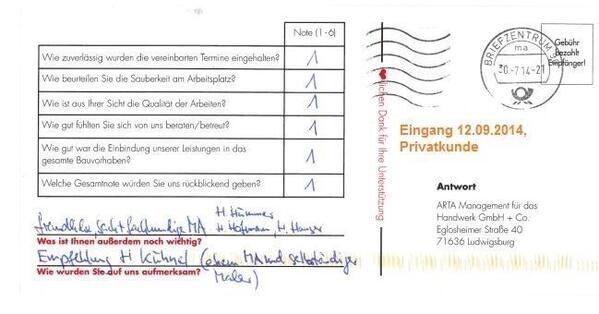 Note (1 - 6)
Wie zuverlässig wurden die vereinbarten Termine eingehalten? 1
Wie beurteilen Sie die Sauberkeit am Arbeitsplatz? 1
Wie ist aus Ihrer Sicht die Qualität der Arbeiten? 1
Wie gut fühlten Sie sich von uns beraten/betreut? 1
Wie gut war die Einbindung unserer Leistungen in das
gesamte Bauvorhaben? 1
Welche Gesamtnote würden Sie uns rückblickend geben? 1
freundliche, sehr fachkundige MA H. Hümmer
H. Hofmann, H.
Was ist Ihnen außerdem noch wichtig?
Empfehlung H Kühnel (ehem. MA und selbständiger
Maler)
Wie wurden Sie auf uns aufmerksam?
lichen Dank für Ihre Unterstützung
BRIEFZENTRUM
ma
30.-7.14-21
Gebühr
bezahlt
Empfänger!
Eingang 12.09.2014,
Privatkunde
Antwort
ARTA Management für das
Handwerk GmbH + Co.
Eglosheimer Straße 40
71636 Ludwigsburg